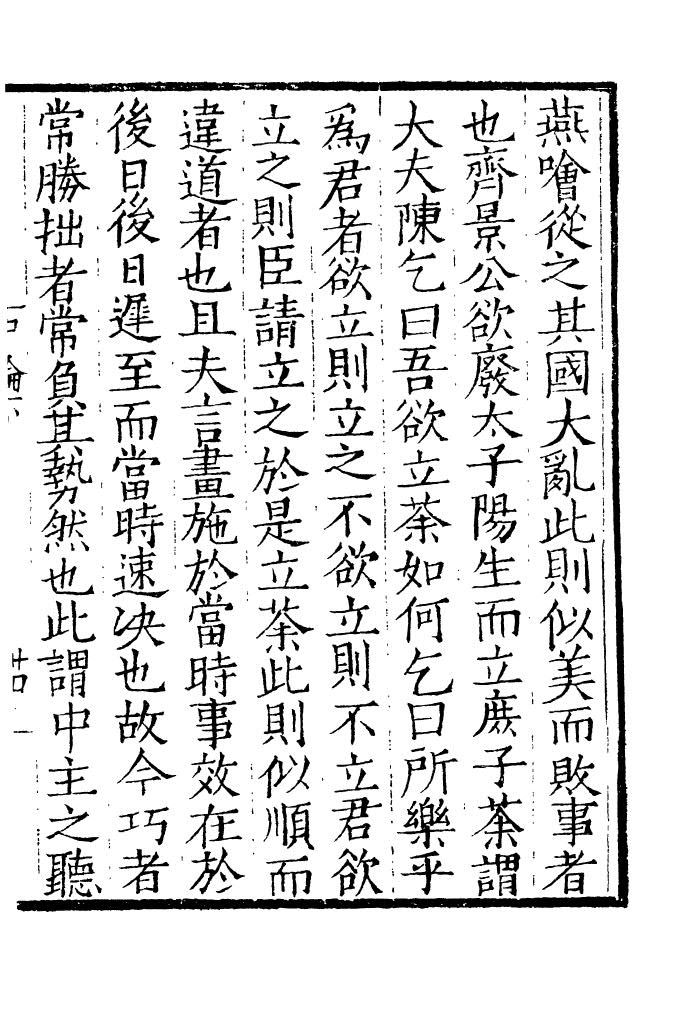 燕噲從之其國大亂此則似美而敗事者
也齊景公欲廢太子陽生而立庶子荼謂
大夫陳乞曰吾欲立荼如何乞曰所樂乎
爲君者欲立則立之不欲立則不立君欲
立之則臣請立之於是立荼此則似順而
違道者也且夫言畫施於當時事效在於
後日後日遲至而當時速决也故今巧者
常勝拙者常負其勢然也此謂中主之聽